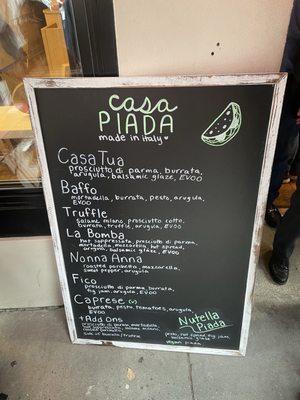 casa
PIADA
made in italy
Casa Tua
prosciutto di parma, burrata,
arugula, balsamic glaze, EVOO
Baffo
mortadella, burrata, pesto, arugula,
EVOO
Truffle
salame milano, prosciutto cotto,
burrata, truffle, arugula, EVOO
La Bomba
hot soppressata, prosciutto di parma,
mortadella, mozzarella, hot spread,
arugula, balsamic glaze, EVOO
Nonna Anna
roasted porchetta, mozzarella,
sweet pepper, arugula
Fico
prosciutto di parma, burrata,
fig jam, arugula, EVOO
Caprese (v)
burrata, pesto, tomatoes, arugula,
EVOO
+Add Ons
prosciutto di parma, mortadella,
side of burrata/truffle
Nutella
Piada
pesto, hot spread, fig jam,
balsamic glaze
vegan piada